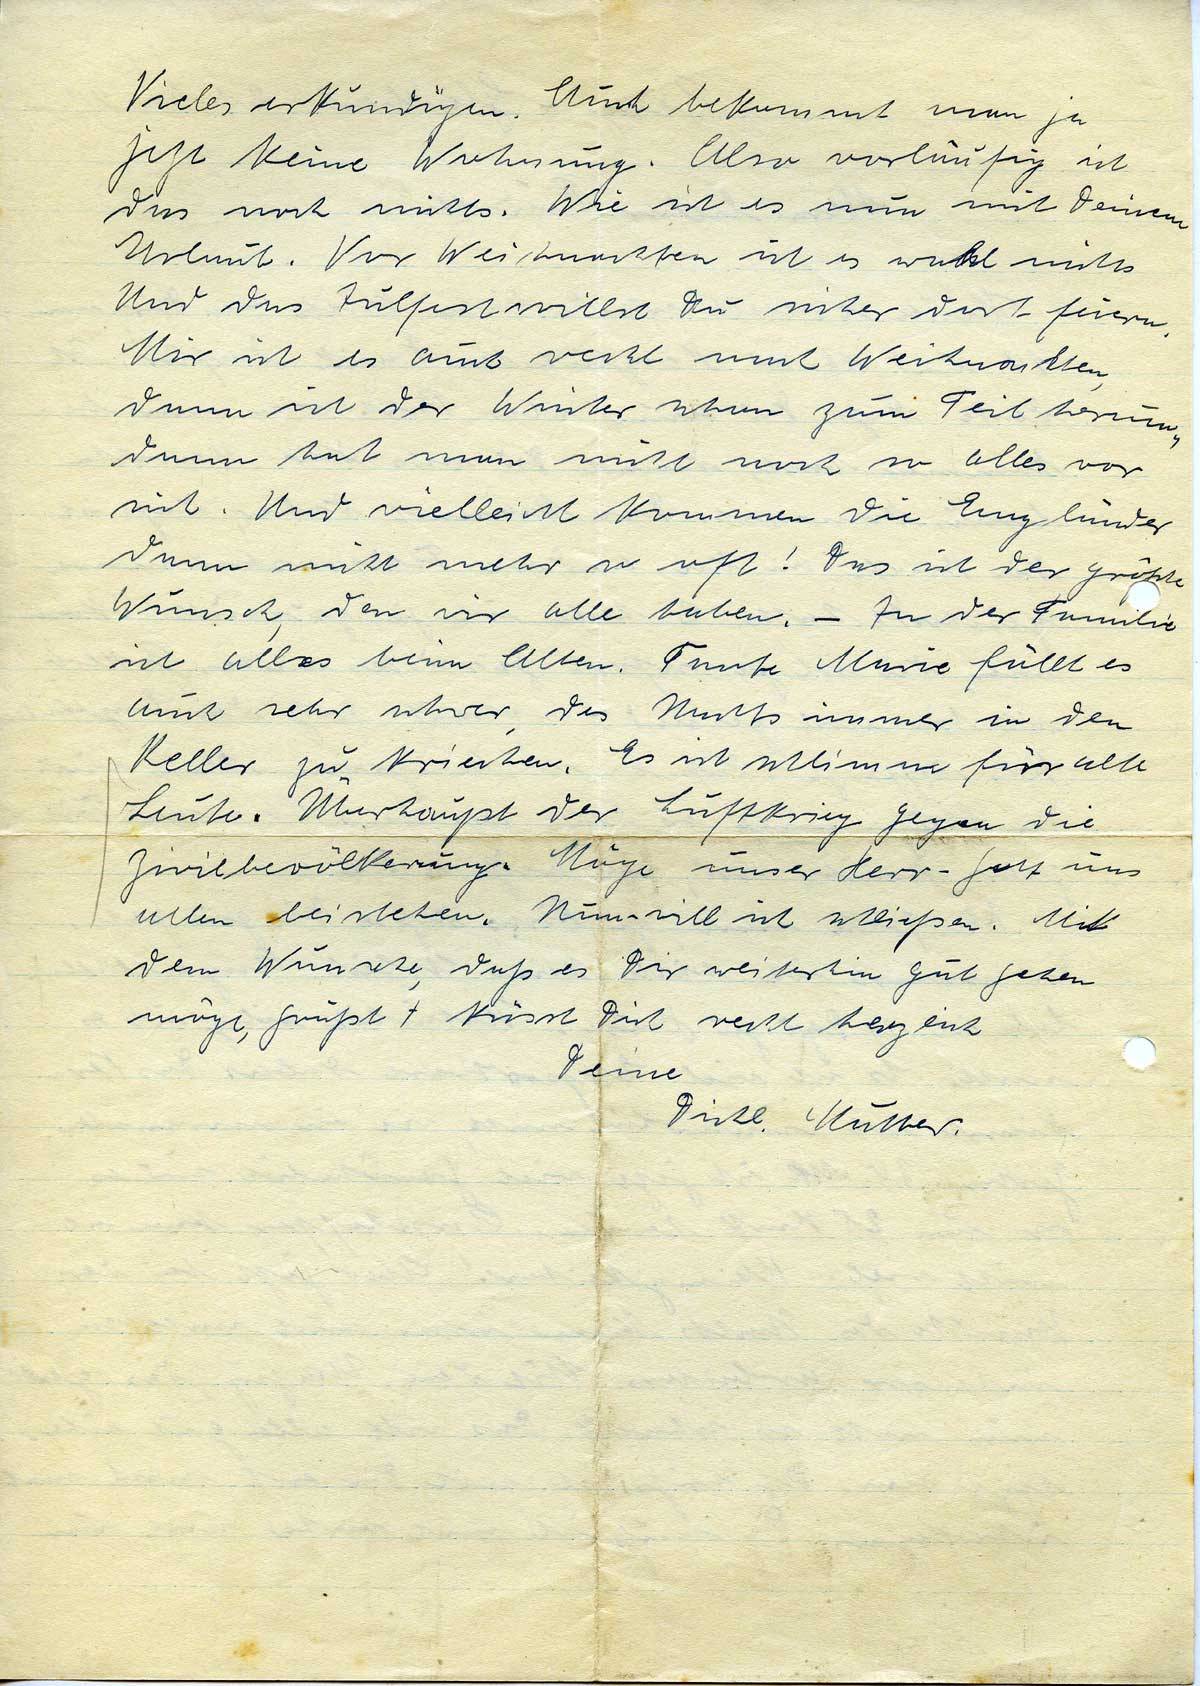 Vieles erkundigen. Auch bekommt man ja
jetzt keine Wohnung. Also vorläufig ist
das noch nichts. Wie ist es nun mit Deinem
Urlaub. Vor Weihnachten ist es wohl nichts
Und das Julfest willst Du sicher dort feiern.
Mir ist es auch recht nach Weihnachten,
dann ist der Winter schon zum Teil herum,
dann hat man nicht noch so alles vor
sich. Und vielleicht kommen die Engländer
dann nicht mehr so oft! Das ist der größte
Wunsch, den wir alle haben. – In der Familie
ist alles beim Alten. Tante Marie fällt es
auch sehr schwer, des Nachts immer in den
Keller zu kriechen. Es ist schlimm für alte
Leute. Überhaupt der Luftkrieg gegen die
Zivilbevölkerung. Möge unser Herr-Gott uns
allen beistehen. Nun will ich schließen. Mit
dem Wunsche, daß es Dir weiterhin gut gehen
möge, grüßt + küsst Dich recht herzlich
Deine
Mutter.